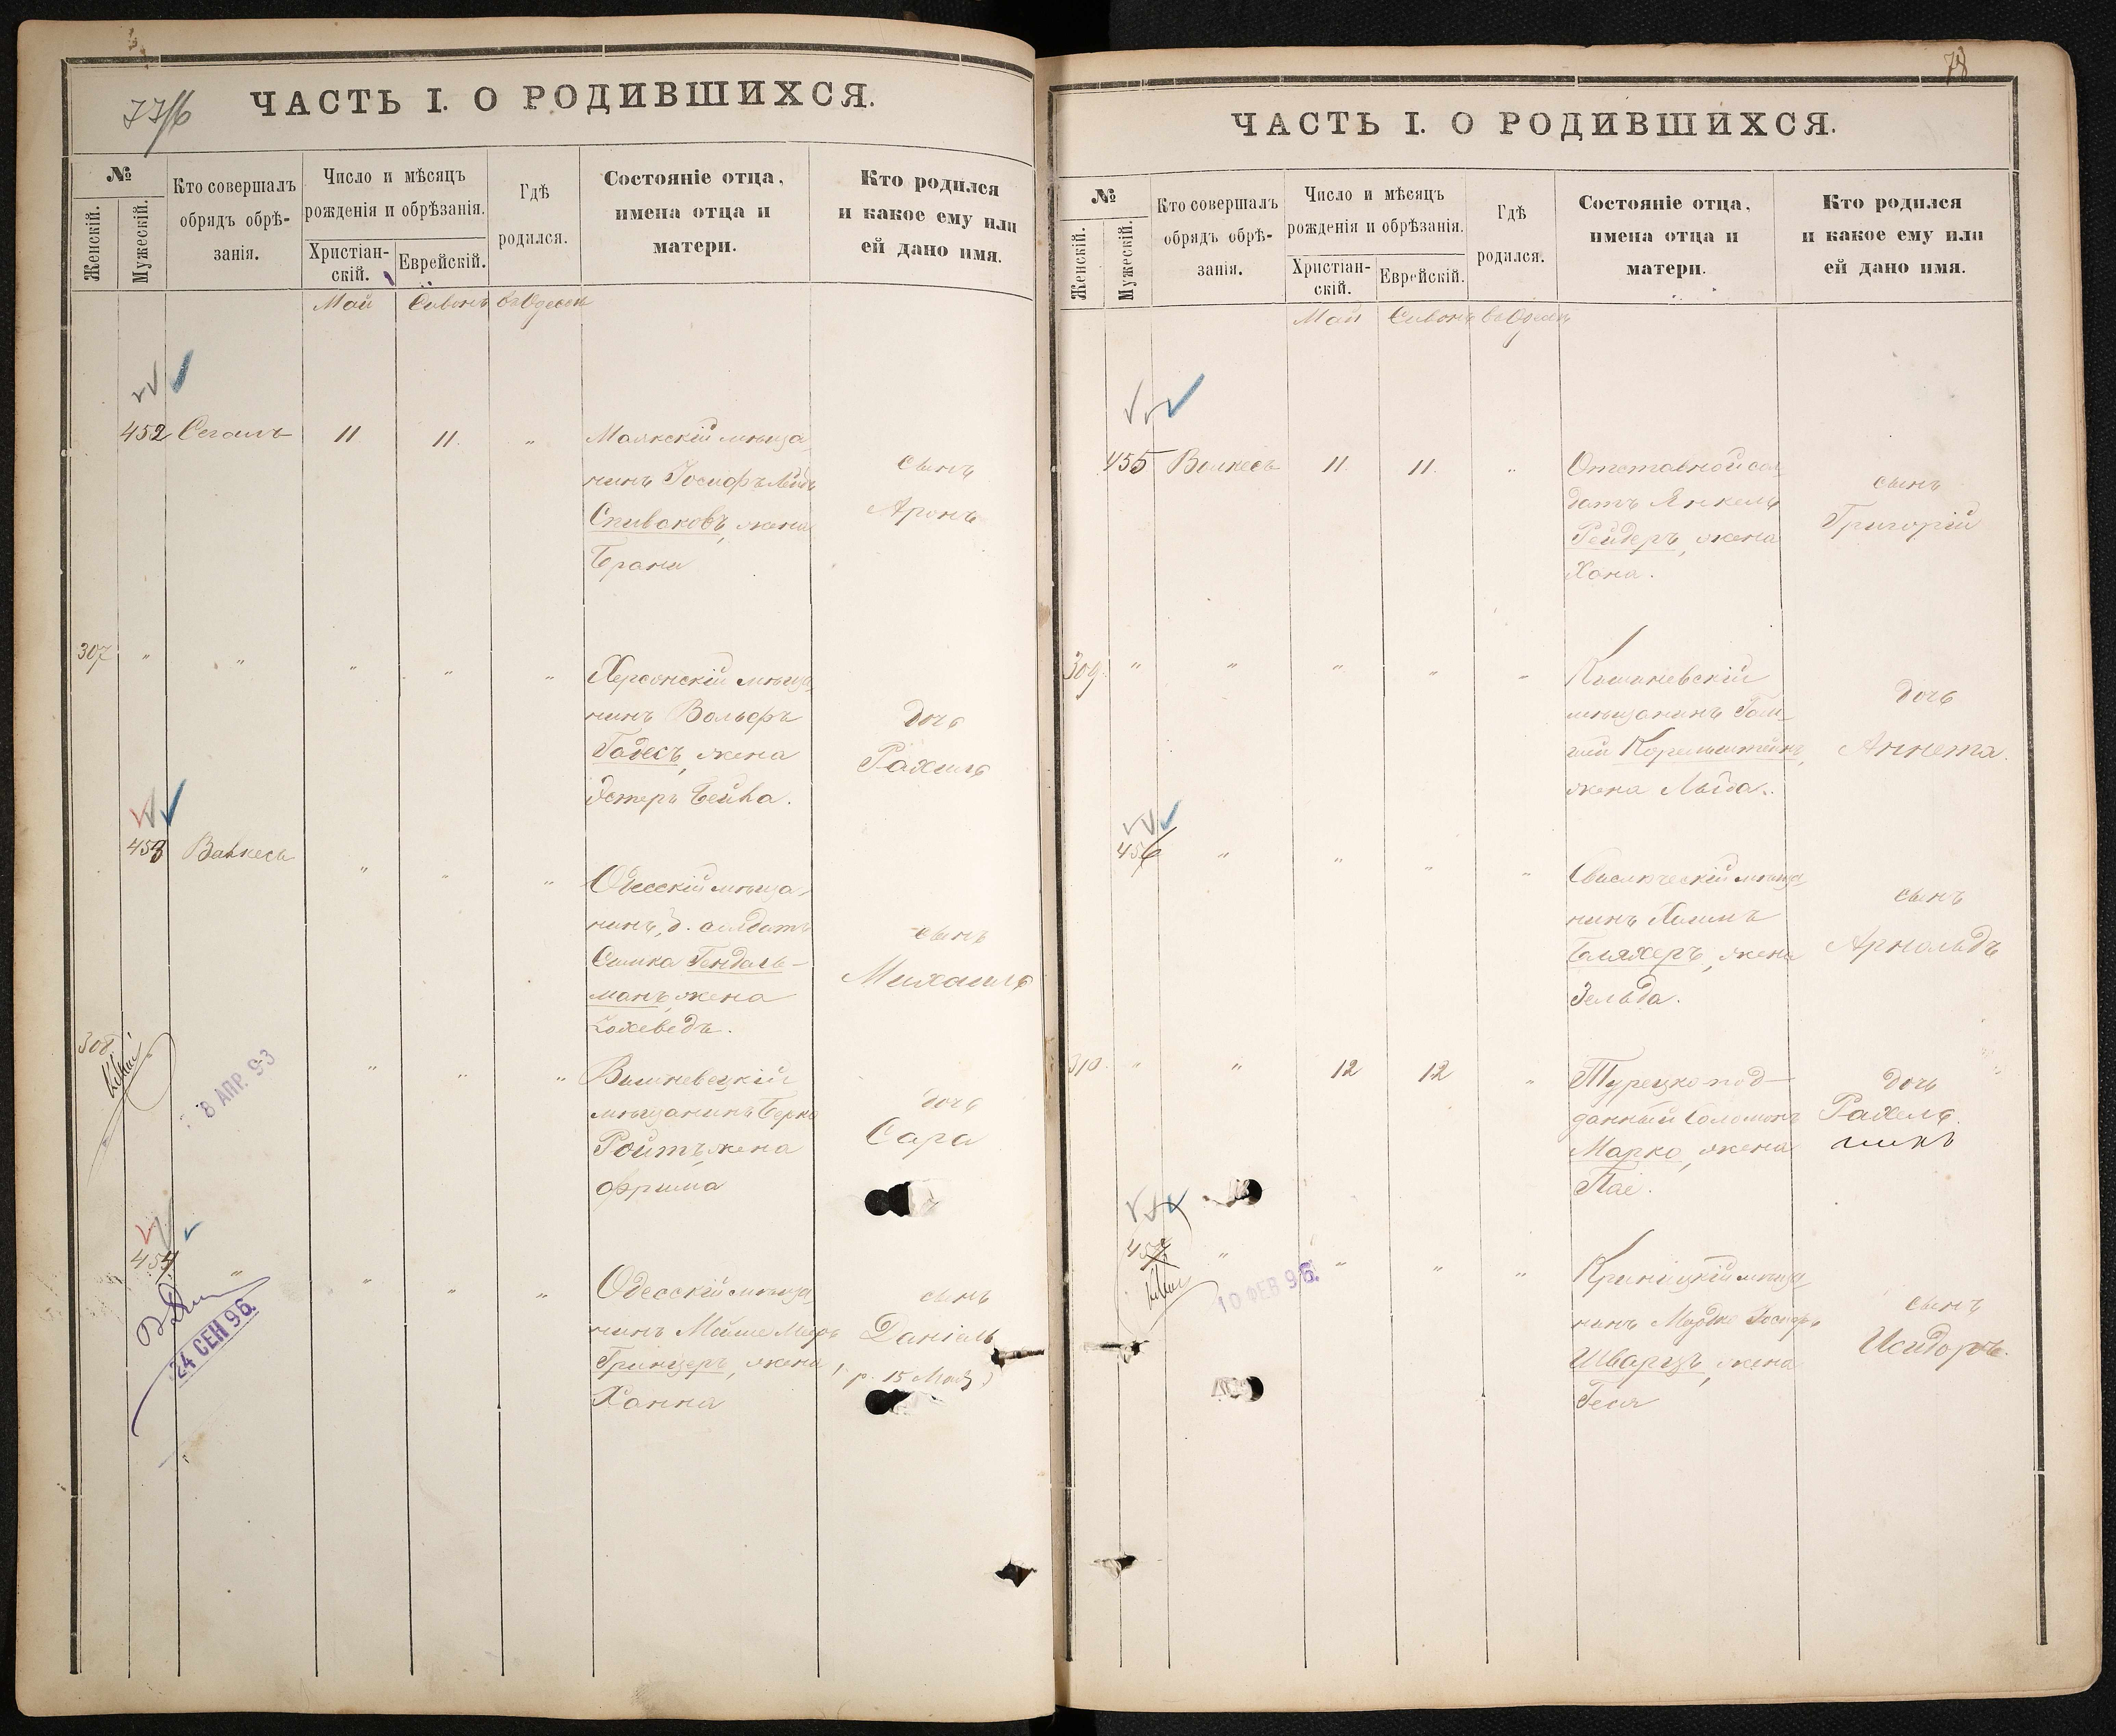 ЧАСТЬ I. О РОДИВШИХСЯ.
№
Женскій.
Мужескій.
Кто совершалъ
обрядъ обрѣ-
занія.
Число и мѣсяцъ
рожденія и обрѣзанія.
Христіан-
скій.
Еврейскій.
Гдѣ
родился.
Состояніе отца,
имена отца и
матери.
Кто родился
и какое ему или
ей дано имя.
Май Сивонъ въ Одессѣ
452 Сегалъ 11 11 "
Маякскій мѣща-
нинъ Іосифъ Лейбъ
Спиваковъ, жена
Брана
сынъ
Аронъ
307 " " " " "
Херсонскій мѣща-
нинъ Вольфъ
Гадесъ, жена
Эстеръ Бейла.
дочь
Рахиль
453 " " "
Одесскій мѣща-
нинъ, б. солдатъ
Симха Гендель-
манъ, жена
Іохеведъ.
сынъ
Михаилъ
308 " " "
8 АПР. 93
Вишневецкій
мѣщанинъ Берко
Ройтъ, жена
Фрима
дочь
Сара
454 " " " "
24 СЕН 96.
Одесскій мѣща-
нинъ Мойше Мееръ
жена
Ханна
сынъ
Даніель
р. 15 Май
78
ЧАСТЬ I. О РОДИВШИХСЯ.
№
Женскій.
Мужескій.
Кто совершалъ
обрядъ обрѣ-
занія.
Число и мѣсяцъ
рожденія и обрѣзанія.
Христіан-
скій.
Еврейскій.
Гдѣ
родился.
Состояніе отца,
имена отца и
матери.
Кто родился
и какое ему или
ей дано имя.
Май Сивонъ въ Одессѣ
455 11. 11. "
Отставной сол-
датъ Янкель
Рейдеръ, жена
Хана.
сынъ
Григорій
309 " " " " "
Кишиневскій
мѣщанинъ
жена
дочь
Аннета.
456 " " " "
мѣща-
нинъ Хаимъ
Бляхеръ, жена
Зельда.
сынъ
Арнольдъ
310 " " 12 12 "
Турецко под-
данный Соломонъ
Марко, жена
дочь
Рахель
457 " " " "
10 ФЕВ 96.
мѣща-
нинъ Мордко Іосифъ
Шварцъ, жена
Геся
сынъ
Исидоръ.